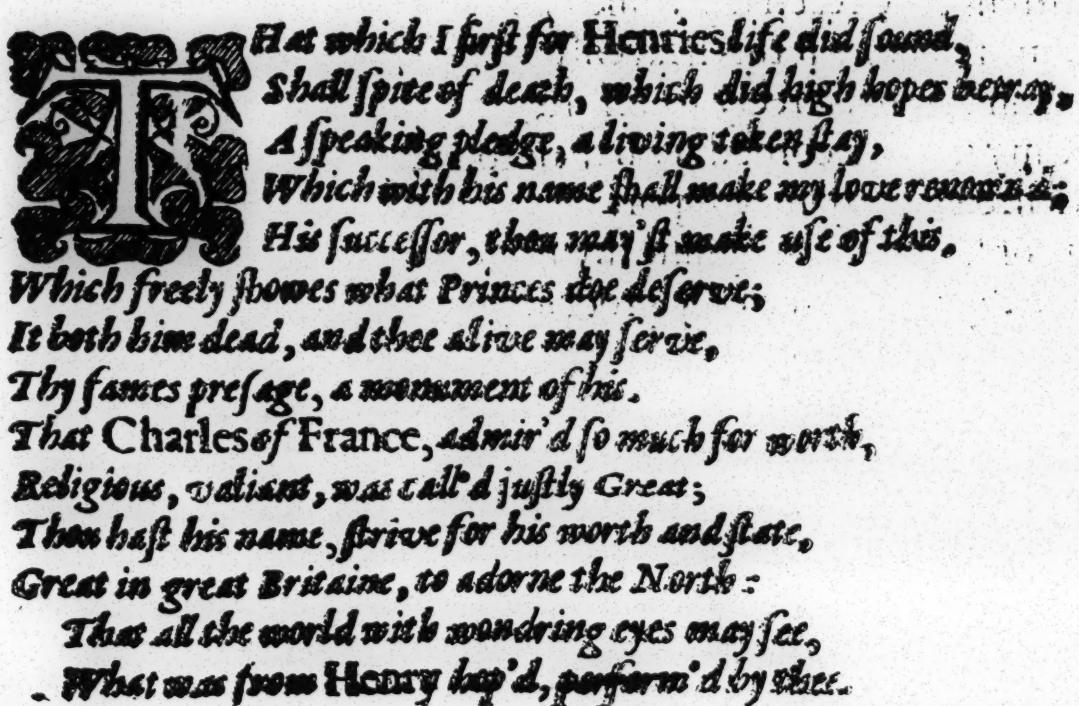 THat which I first for Henries life did sound,
Shall spite of death, which did high hopes betray,
A speaking pledge, a living token stay,
Which with his name shall make my love renown'd;
His successor, thou may'st make use of this,
Which freely showes what Princes doe deserve;
It both him dead, and thee alive may serve,
Thy fames presage, a monument of his.
That Charles of France, admir'd so much for worth,
Religious, valiant, was call'd justly Great;
Thou hast his name, strive for his worth and state,
Great in great Britaine, to adorne the North:
That all the world with wondring eyes may see,
What was from Henry hop'd, perform'd by thee.